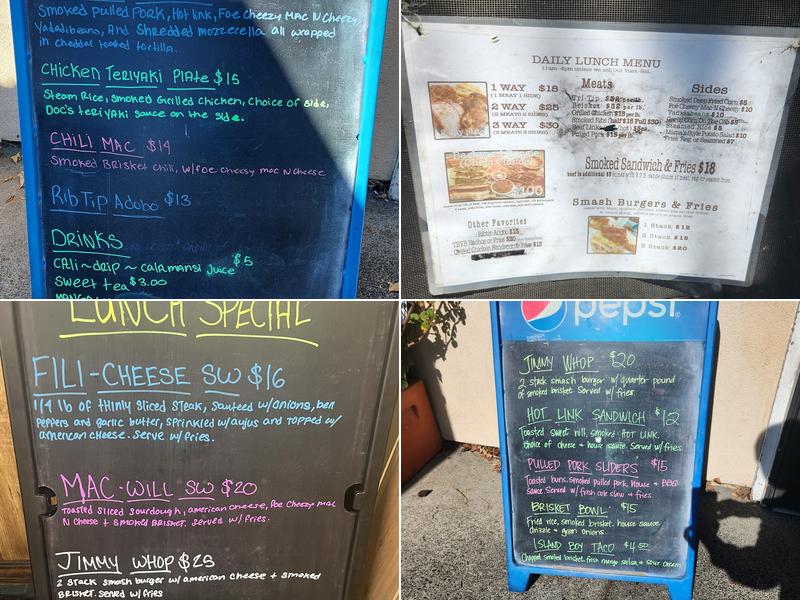 Smoked pulled Pork, Hot link, Foe Cheezy Mac N Cheezy,
Yadadibeans, And Shredded mozzerella all wrapped
in cheddar toasted tortilla.
Chicken Teriyaki Plate $15
Steam Rice, smoked Grilled Chicken, choice of side,
Doc's Teriyaki sauce on the side.
Chili Mac $14
Smoked Brisket chili, w/foe cheesy mac N cheese
Rib Tip Adobo $13
Drinks
Cali~drip ~ calamansi Juice $5
Sweet tea $3.00
DAILY LUNCH MENU
1 WAY $18
(1 MEAT 1 SIDE)
2 WAY $25
3 WAY $30
Meats
Brisket $32 per lb.
Grilled Chicken $18 per lb.
Smoked Ribs (half $18 Full $30)
Pulled Pork $18 per lb.
Sides
Smoked Deep Fried Corn $5
Foe Cheezy Mac N Cheezy $10
Yadadabeans $10
Garlic Corn On The Cob $5
Steamed Rice $5
Mama's Style Potato Salad $10
Fries Reg. or Seasoned $7
$100
Smoked Sandwich & Fries $18
Other Favorites
Ribtip Adobo $13
Smash Burgers & Fries
1 Stack $12
2 Stack $15
3 Stack $20
LUNCH SPECIAL
FILI-CHEESE SW $16
1/4 lb of thinly sliced steak, sauteed w/onions, bell
peppers and garlic butter, sprinkled w/aujus and topped w/
american cheese. Serve w/fries.
MAC-WILL SW $20
Toasted sliced sourdough, american cheese, Foe Cheezy mac
N Cheese + Smoked Brisket. Served w/fries.
JIMMY WHOP $25
2 stack smash burger w/ american cheese + smoked
Brisket. served w/fries
pepsi
JIMMY WHOP $20
2 stack smash burger w/ quarter pound
of smoked brisket. Served w/fries.
HOT LINK SANDWICH $12
Toasted sweet roll, smoked HOT LINK.
choice of cheese + house sauce. Served w/fries
PULLED PORK SLIDERS $15
Toasted buns, smoked pulled pork, house + BBQ
sauce. Served w/ fresh cole slaw + fries.
BRISKET BOWL $15
Fried rice, smoked brisket, house sauce
drizzle + green onions.
ISLAND BOY TACO $4.50
Chopped smoked brisket, fresh mango salsa + sour cream